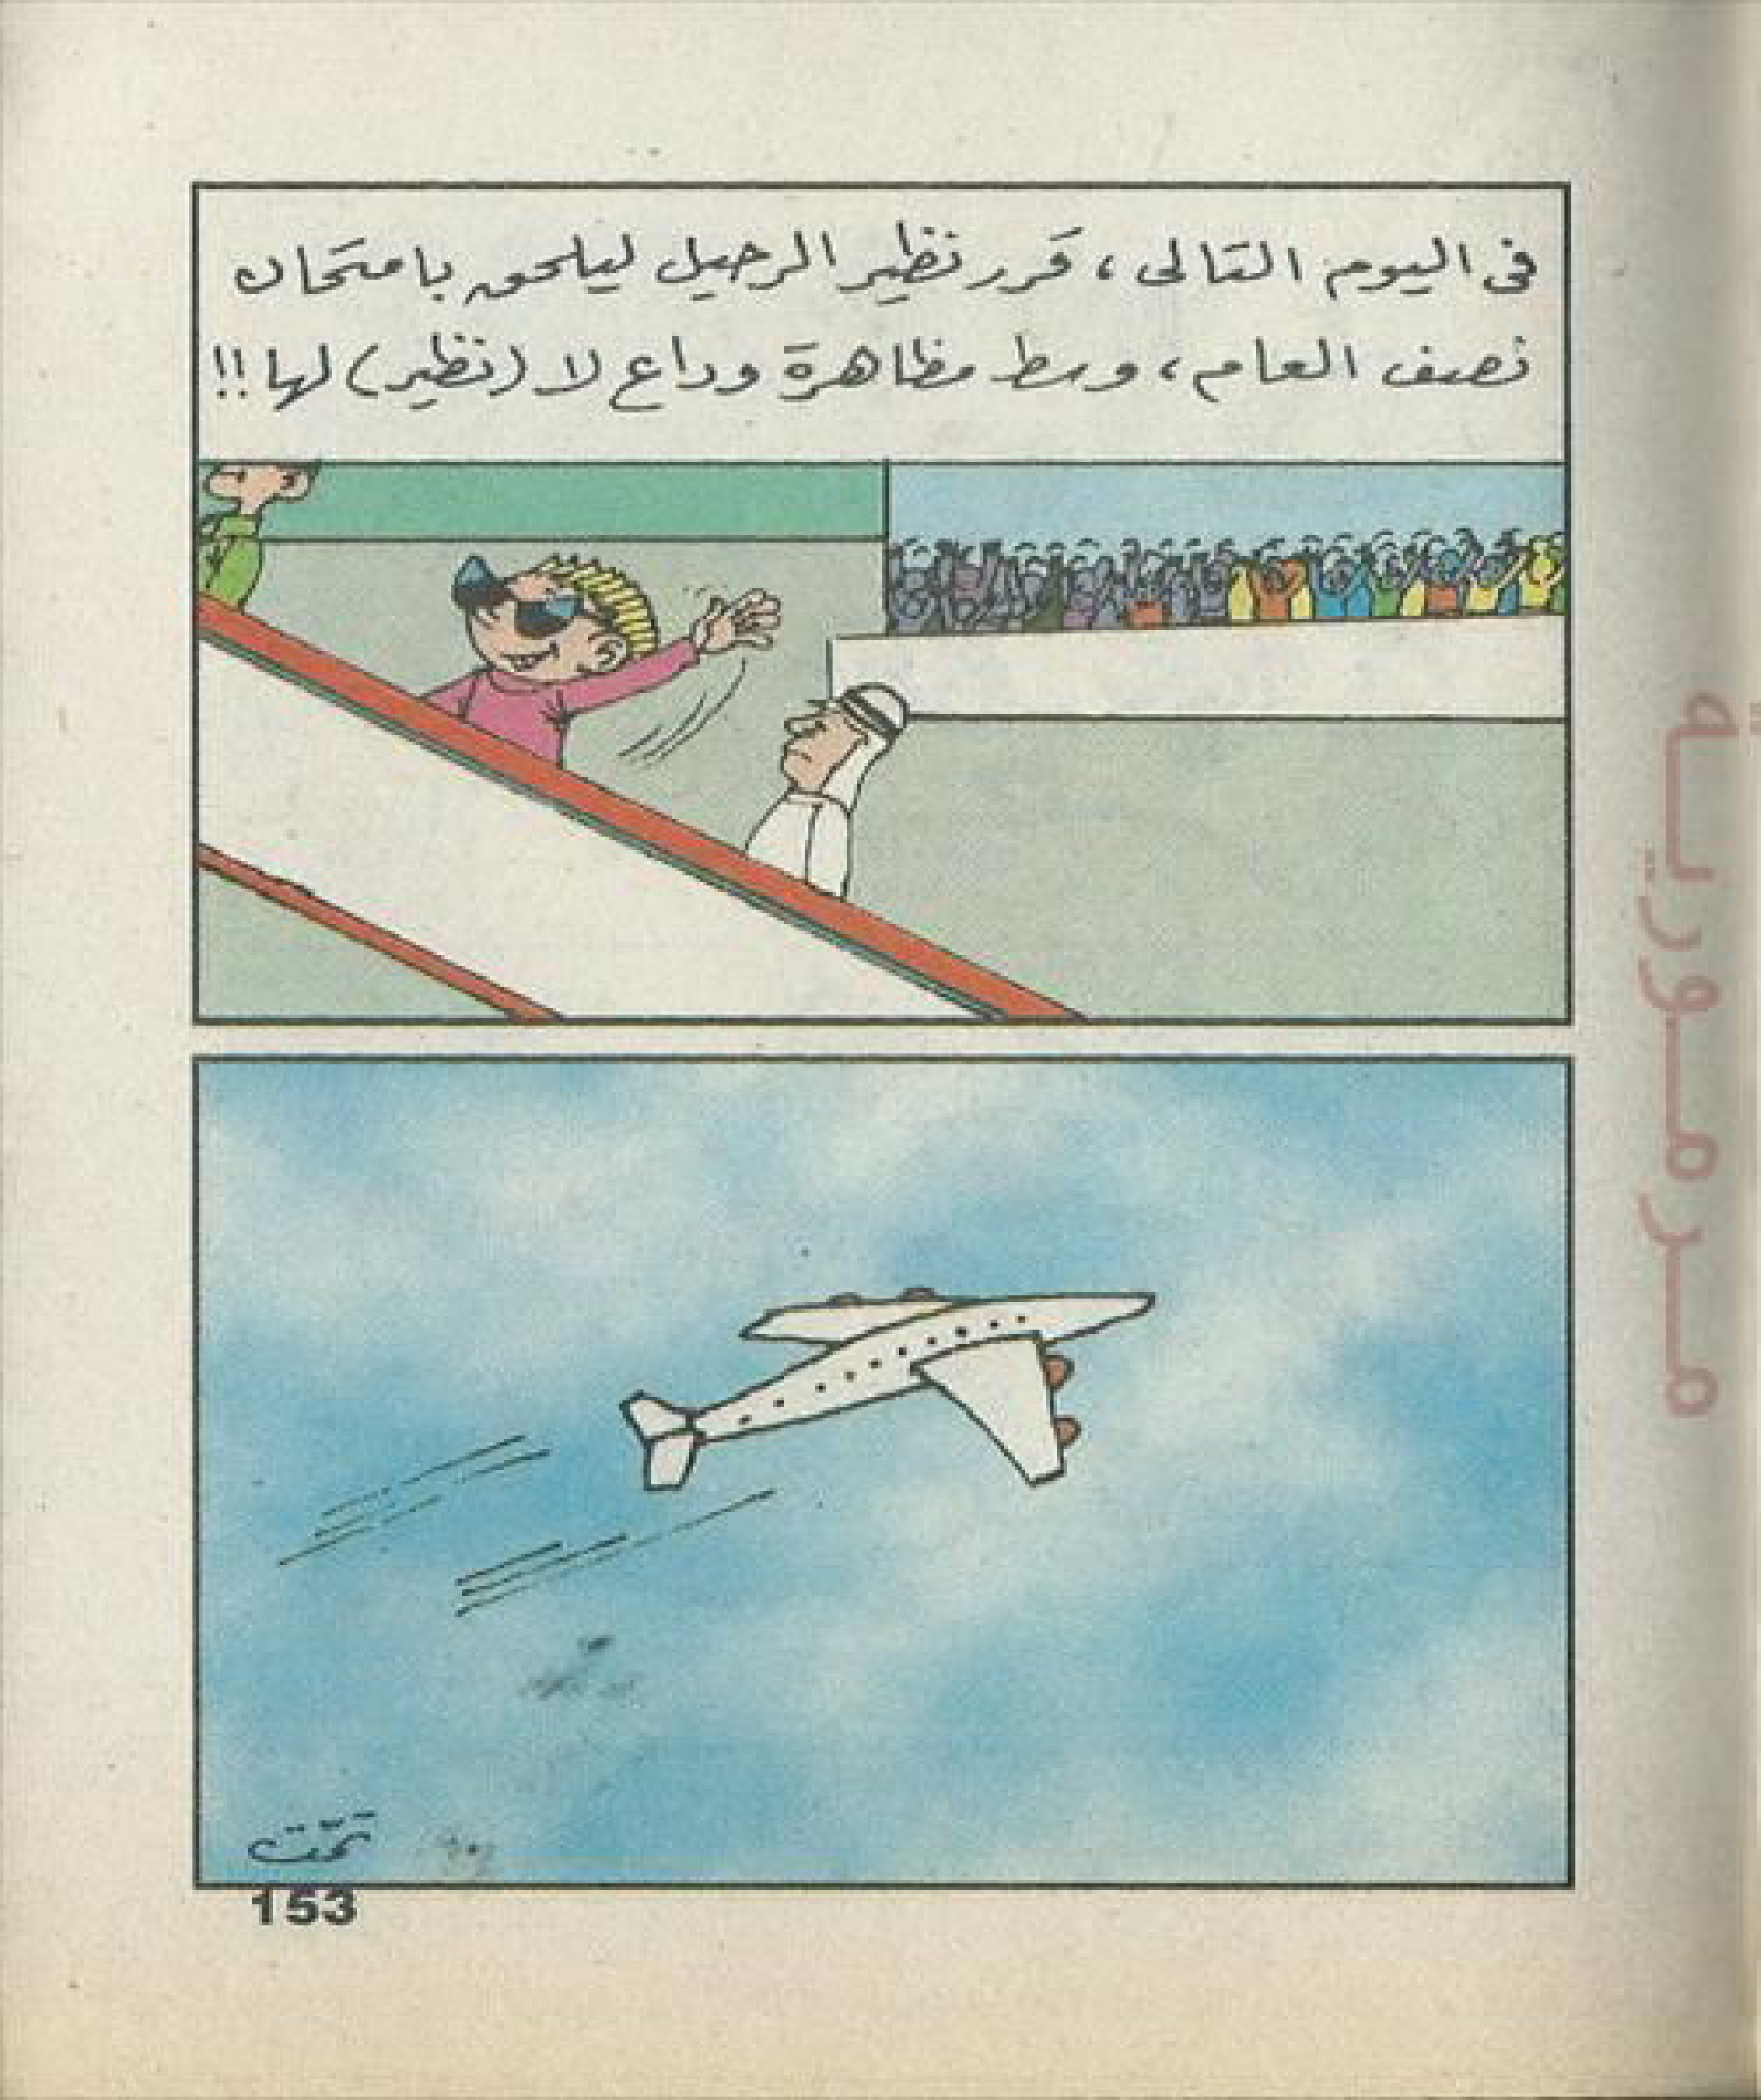 فى اليوم التالى، قرر نظير الرحيل ليلحق بامتحان
نصف العام، وسط مظاهرة وداع لا (نظير) لها!!
تمّت
153